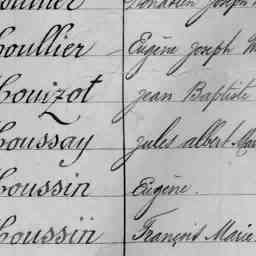 Donatien Joseph
oullier Eugène Joseph
ouizot jean Baptiste
oussay jules albert Mar
oussin Eugène.
oussin François Marie